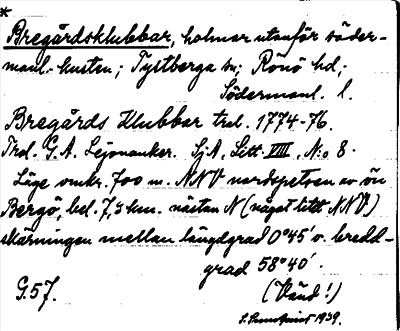 *
Bregårdsklubbar, holmar utanför söder-
manl. kusten; Tystberga sn; Rönö hd;
Södermanl. l.
Bregårds Klubbar trol. 1774-76.
Thol. G. A. Lejonanker. SjA, Litt. VIII, N:o 8.
Läge omkr. 700 m. NNV nordspetsen av ön
Bergö, bel. 7,5 km. nästan N (något litet NNV)
skärningen mellan längdgrad 0°45' o. bredd-
grad 58°40'.
G.57. (Vänd!)
1939.